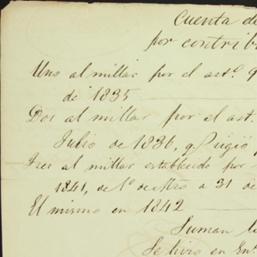 Cuenta de
por contrib
Uno al millar por el artº. q
de 1835
Dos al millar por el art.
Julio de 1836, q. rigió
Tres al millar establecido por
1841, de 1º de Mzo a 31 de
El mismo en 1842
Suman l
Se livró en En.